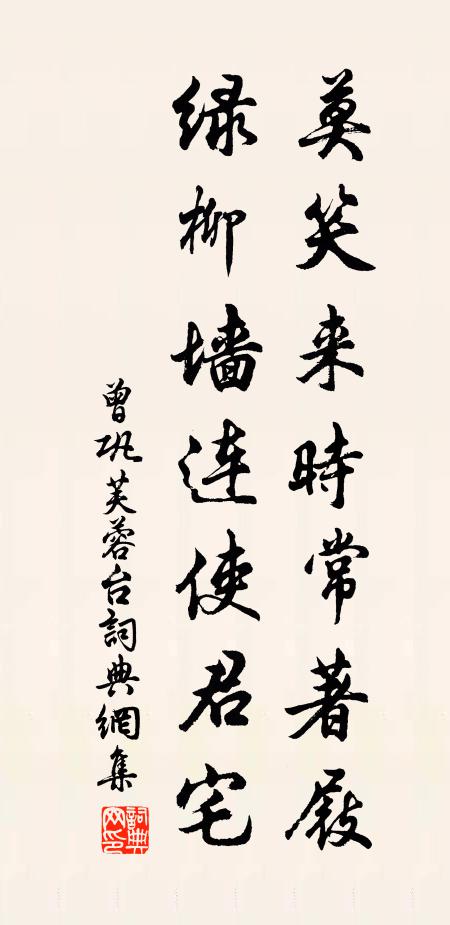 莫笑来時常著屐
绿柳墙连使君宅
曾巩芙蓉台詞典網集
詞典網印